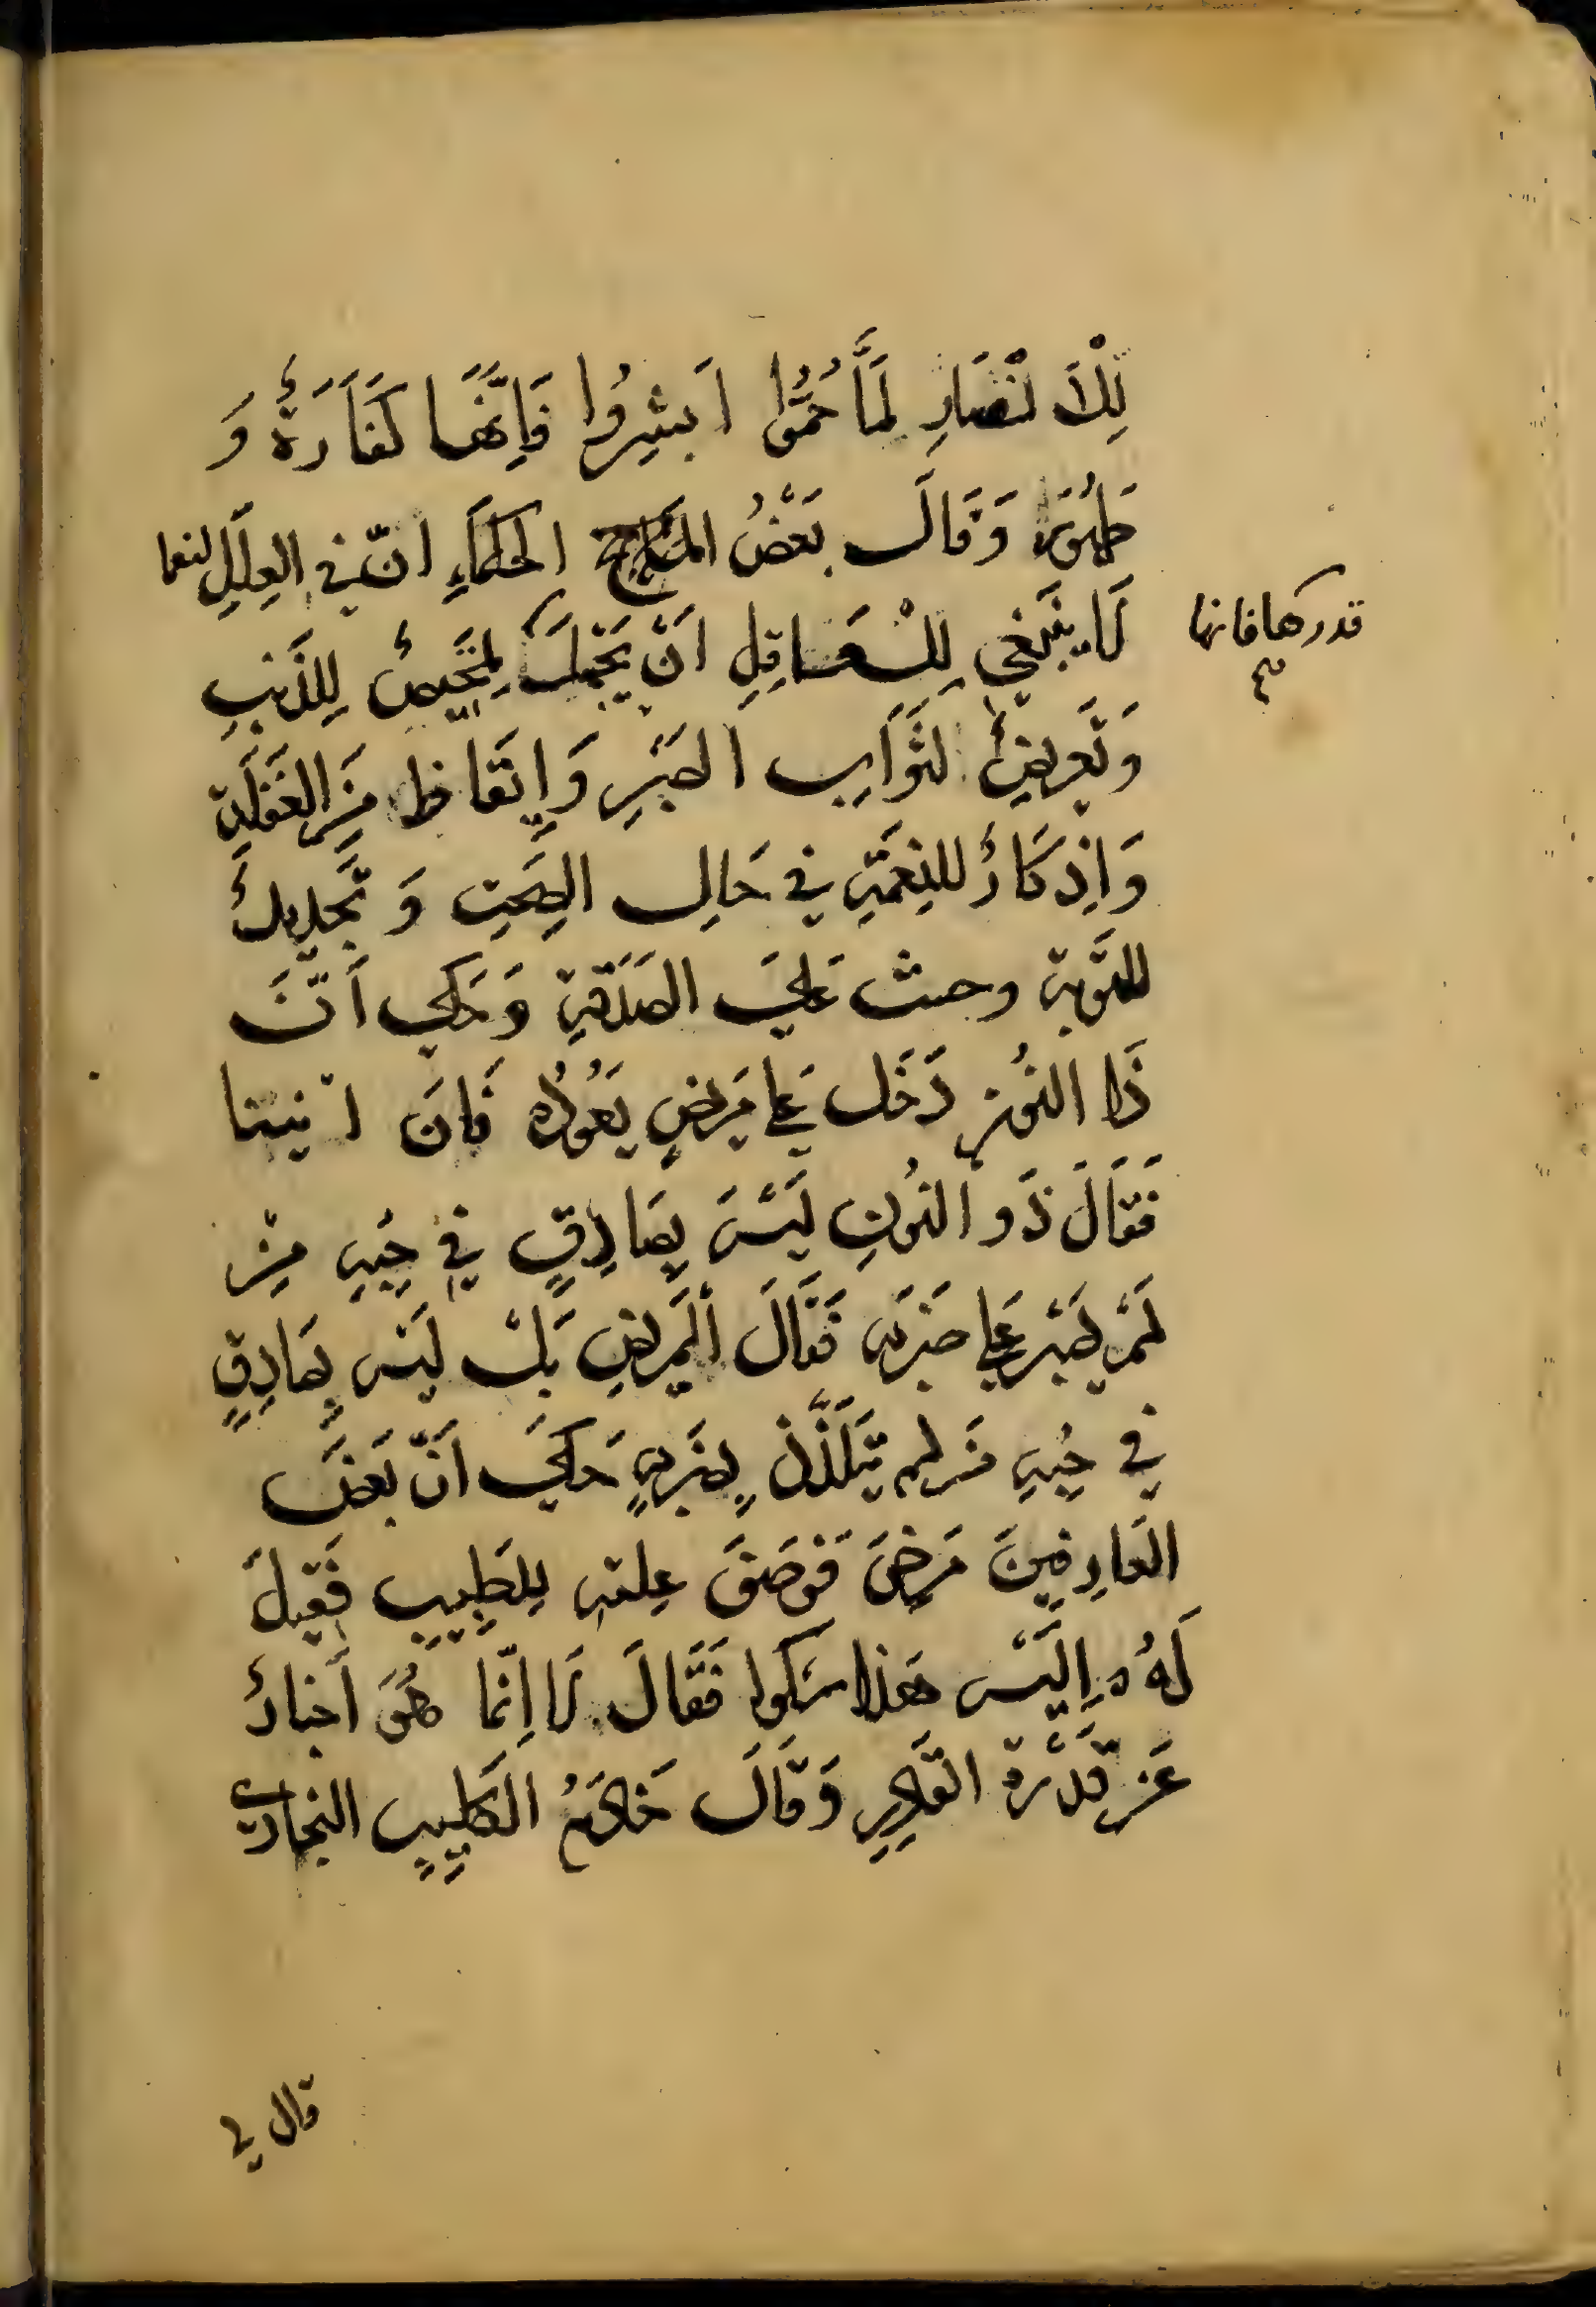 لِلْاَنْصَارِ لَمَّا حُمُّوا اَبشِرُوا فَاِنَّهَا كَفَارَةٌ وَ
طَهُورٌ وَقَالَ بَعْضُ الحكماءِ انّ في العِلَلِ لنعما
لَا يَنْبَغي لِلْعَاقِلِ اَنْ يَجْهَلَ تمحيصٌ لِلذَنبِ
قدرها فانها
صح
وَتَعرِيضٌ لثَوَابِ الصَبْرِ وَاِيقَاظ مِنَ الغَفلَةِ
وَاِذكَارٌ للنِعْمَةِ في حَالِ الصِحَةِ وَ تَجديدٌ
للتوبة وحث عَلىَ الصَدَقَةِ وَحَكي اَنَّ
ذَا النُون دَخَل عَلى مَرِيضٍ يَعُودُه فَانَ انينا
فَقَالَ ذُو النُونِ لَيْسَ بِصَادِقٍ في حُبِهِ مَنْ
لَمْ يَصْبَر عَلى ضَرْبِه فَقَالَ اَلمَرِيضِ بَلْ لَيْسَ بِصَادِقٍ
في حُبِهِ مَن لم يَتَلَذَّذ بِضَربِهِ حَكيَ اَنَّ بَعْضَ
العَارِفِينَ مَرِضَ فَوصَفَ عِلته لِلطَبِيبِ فَقِيلَ
لَهُ اَلَيْسَ هَذا شكوا فَقَالَ لَا اِنّما هُوَ اَخبارٌ
عَن قُدْرَة القَادِرِ وَقَالَ خَادِمُ الطَبِيبِ النجارى
قال لي